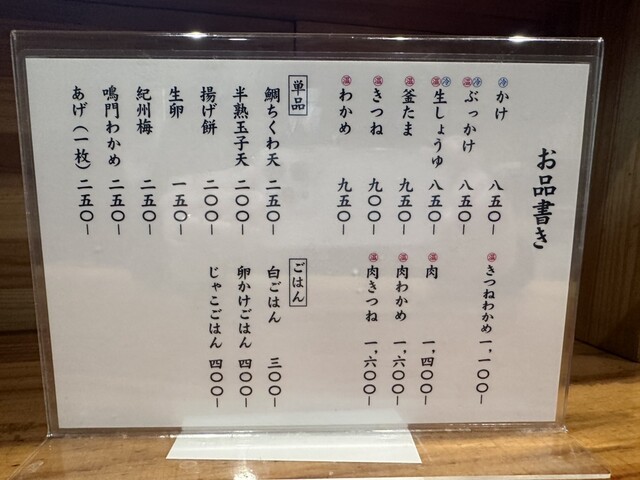 お品書き
冷 かけ 八五〇ー
温 冷 ぶっかけ 八五〇ー
温 冷 生しょうゆ 八五〇ー
温 釜たま 九五〇ー
温 きつね 九〇〇ー
温 わかめ 九五〇ー
温 きつねわかめ 一,一〇〇ー
温 肉 一,四〇〇ー
温 肉わかめ 一,六〇〇ー
温 肉きつね 一,六〇〇ー
単品
鯛ちくわ天 二五〇ー
半熟玉子天 二〇〇ー
揚げ餅 二〇〇ー
生卵 一五〇ー
紀州梅 二五〇ー
鳴門わかめ 二五〇ー
あげ（一枚） 二五〇ー
ごはん
白ごはん 三〇〇ー
卵かけごはん 四〇〇ー
じゃこごはん 四〇〇ー